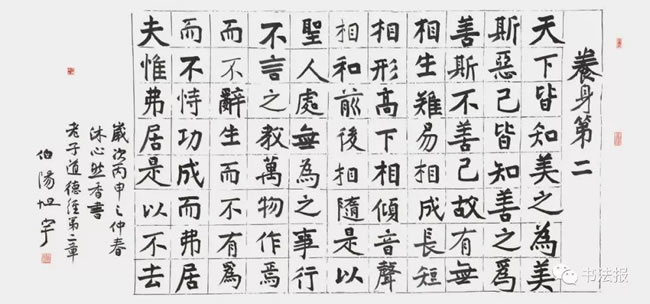 養身第二
天下皆知美之為美
斯惡己皆知善之爲
善斯不善己故有無
相生難易相成長短
相形高下相傾音聲
相和前後相隨是以
聖人處無為之事行
不言之教萬物作焉
而不辭生而不有爲
而不恃功成而弗居
夫惟弗居是以不去
歲次丙申之仲春
沐心然香書
老子道德經第二章
伯陽坦
书法报